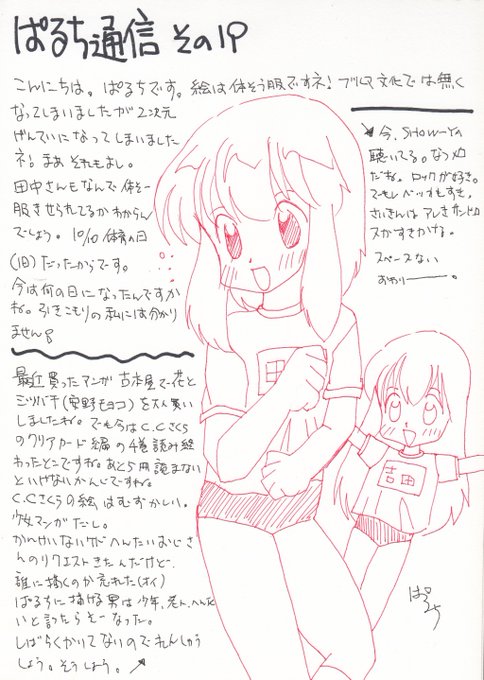 ぱるち通信 その19
こんにちは。ぱるちです。絵は体そう服ですネ! ブルマ文化では無く
なってしまいましたが2次元
げんていになってしまいました
ネ! まあ それもよし。
田中さんもなんで体そー
服きせられてるかわからん
でしょう。10/10 体育の日
(旧)だったからです。
今は何の日になったんですか
ね。引きこもりの私には分かり
ません。
最近買ったマンガ 古本屋で花と
ミツバチ(安野モヨコ)を大人買い
しましたね。でも今はC.Cさくら
のクリアカード編の4巻読み終
わったとこですね。あと5冊読まない
といけないかんじですね。
C.Cさくらの絵はむずかしい。
少女マンガだし。
かんけいないけどへんたいおじさ
んのリクエストきたんだけど、
誰に描くのか忘れた(オイ)
ぱるちに描ける男は少年、老人、へんた
いと言ったらそーなった。
しばらくかいてないのでれんしゅう
しよう。そうしよう。
今、SHOW-YA
聴いてる。なつメロ
だね。ロックが好き。
でもレベッカもすき。
さいきんは アレキサンドロ
スがすきかな。
スペースない
おわり
田
吉田
ぱるち